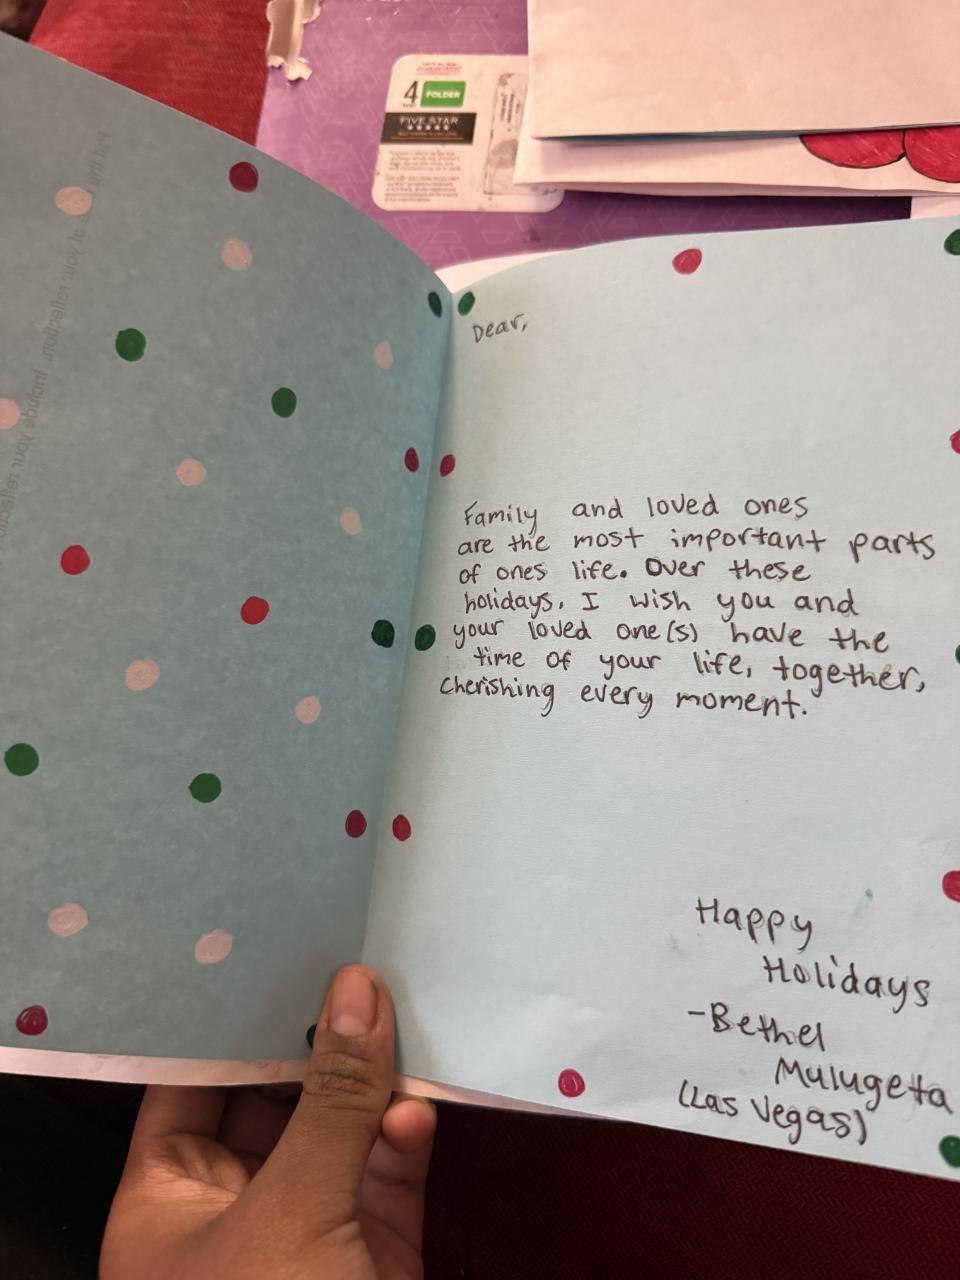 4
FOLDER
FIVE STAR
Dear,
Family and loved ones
are the most important parts
of ones life. Over these
holidays, I wish you and
your loved one(s) have the
time of your life, together,
cherishing every moment.
Happy
Holidays
-Bethel
Mulugeta
(Las Vegas)